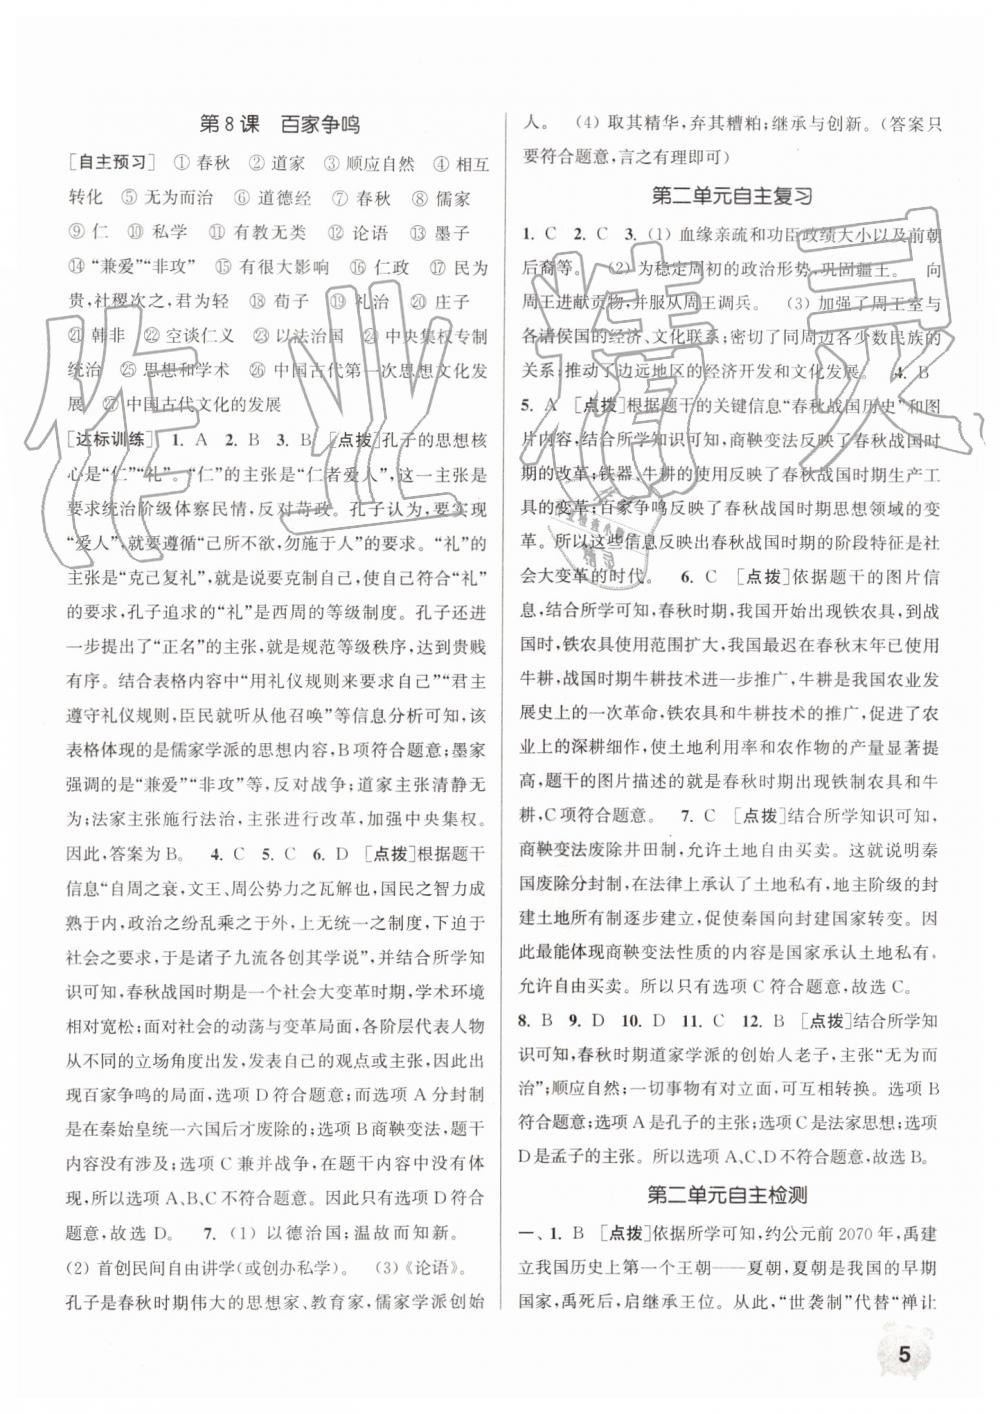 第 8 课　百家争鸣
[自主预习]　① 春秋　② 道家　③ 顺应自然　④ 相互
转化　⑤ 无为而治　⑥ 道德经　⑦ 春秋　⑧ 儒家
⑨ 仁　⑩ 私学　⑪ 有教无类　⑫ 论语　⑬ 墨子
⑭ “兼爱”“非攻”　⑮ 有很大影响　⑯ 仁政　⑰ 民为
贵,社稷次之,君为轻　⑱ 荀子　⑲ 礼治　⑳ 庄子
㉑ 韩非　㉒ 空谈仁义　㉓ 以法治国　㉔ 中央集权专制
统治　㉕ 思想和学术　㉖ 中国古代第一次思想文化发
展　㉗ 中国古代文化的发展
[达标训练]　1. A　2. B　3. B　[点拨]孔子的思想核
心是“仁”“礼”。“仁”的主张是“仁者爱人”,这一主张要
求统治阶级体察民情,反对苛政。孔子认为,要实现
“爱人”,就要遵循“己所不欲,勿施于人”的要求。“礼”的
主张是“克己复礼”,就是说要克制自己,使自己符合“礼”
的要求,孔子追求的“礼”是西周的等级制度。孔子还进
一步提出了“正名”的主张,达到贵贱有“序”、长幼
有序。结合表格内容中“用礼仪规则来要求自己”“君主
遵守礼仪规则,臣民就听从他召唤”等信息分析可知,该
表格体现的是儒家学派的思想内容,B项符合题意;墨家
强调的是“兼爱”“非攻”等,反对战争;道家主张清静无
为;法家主张施行法治,主张进行改革,加强中央集权。
因此,答案为 B。　4. C　5. C　6. D　[点拨]根据题干
信息“自周之衰,文王、周公势力之瓦解也,国民之智力成
熟于内,政治之纷乱乘之于外,上无统一之制度,下迫于
社会之要求,于是诸子九流各创其学说”,并结合所学知
识可知,春秋战国时期是一个社会大变革时期,学术环境
相对宽松;面对社会的动荡与变革局面,各阶层代表人物
从不同的立场角度出发,发表自己的观点或主张,因此出
现百家争鸣的局面,所以选项 D 符合题意;选项 A 分封制
是在秦始皇统一六国后才废除的;选项 B 商鞅变法,题干
内容没有涉及;选项 C 兼并战争,在题干内容中没有体
现,所以选项 A、B、C 不符合题意。所以只有选项 D 符合
题意,故选 D。　7. （1）以德治国;温故而知新。
（2）首创民间自由讲学(或创办私学)。　（3）《论语》。
孔子是春秋时期伟大的思想家、教育家,儒家学派创始
人。　（4）取其精华,弃其糟粕;继承与创新。（答案只
要符合题意,言之有理即可）
第二单元自主复习
1. C　2. C　3. （1）血缘亲疏和功臣政绩大小以及前朝
后裔等。　（2）为稳定周初的政治形势,巩固疆土。　向
周王进献贡物,并服从周王调兵。　（3）加强了周王室与
各诸侯国的经济、文化联系;密切了同周边各少数民族的
关系;推动了边远地区的经济开发和文化发展。　4. B
5. A　[点拨]根据题干的关键信息“春秋战国历史”和图
片内容,结合所学知识可知,商鞅变法反映了春秋战国时
期的改革;铁器、牛耕的使用反映了春秋战国时期生产工
具的变革;百家争鸣反映了春秋战国时期思想领域的变
革。所以这些信息反映出春秋战国时期的阶段特征是社
会大变革的时代。　6. C　[点拨]依据题干的图片信
息,结合所学可知,春秋时期,我国开始出现铁农具,到战
国时,铁农具使用范围扩大,我国最迟在春秋末年已使用
牛耕,战国时期牛耕技术进一步推广,牛耕是我国农业发
展史上的一次革命,铁农具和牛耕技术的推广,促进了农
业上的深耕细作,使土地利用率和农作物的产量显著提
高,题干的图片描述的就是春秋时期出现铁制农具和牛
耕,C 项符合题意。　7. C　[点拨]结合所学知识可知,
商鞅变法废除井田制,允许土地自由买卖。这就说明秦
国废除分封制,在法律上承认了土地私有,地主阶级的封
建土地所有制逐步建立,促使秦国向封建国家转变。因
此最能体现商鞅变法性质的内容是国家承认土地私有,
允许自由买卖。所以只有选项 C 符合题意,故选 C。
8. B　9. D　10. D　11. C　12. B　[点拨]结合所学知
识可知,春秋时期道家学派的创始人老子,主张“无为而
治”;顺应自然;一切事物有对立面,可互相转换。选项 B
符合题意;选项 A 是孔子的主张;选项 C 是法家思想;选项
D 是孟子的主张。所以选项 A、C、D 不符合题意,故选 B。
第二单元自主检测
一、1. B　[点拨]依据所学可知,约公元前 2070 年,禹建
立我国历史上第一个王朝——夏朝,夏朝是我国的早期
国家,禹死后,启继承王位。从此,“世袭制”代替“禅让
5
作业精灵